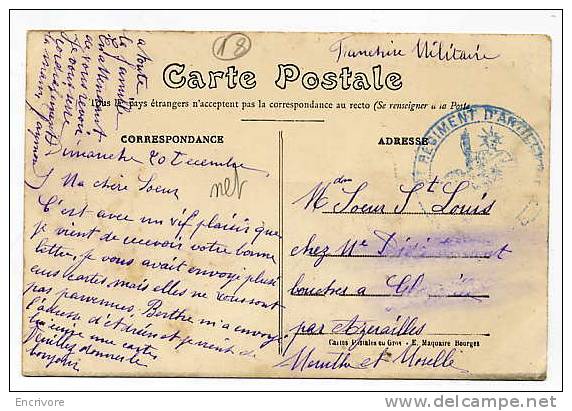 18
Franchise Militaire
Carte Postale
Tous les pays étrangers n'acceptent pas la correspondance au recto (Se renseigner à la Poste
CORRESPONDANCE
ADRESSE
REGIMENT D'ARTILLERIE
a toute
la famille
En attendant
de vous revoir
je vous serre
cordialement
la main
Dimanche 20 Decembre
Ma chère Soeur
net
C'est avec un vif plaisir que
je vient de recevoir votre bonne
lettre, je vous avait envoyé plusi
eurs cartes mais elles ne vous sont
pas parvenues. Berthe m'a envoyé
l'adresse d' et je vient de
lui une carte
Veuillez donner le
bonjour
Mdme Soeur St Louis
chez Mr
boucher a
par Azerailles
Meurthe et Moselle
Cartes Postales en Gros - E. Maquaire Bourges
Encrivore
delcampe.net